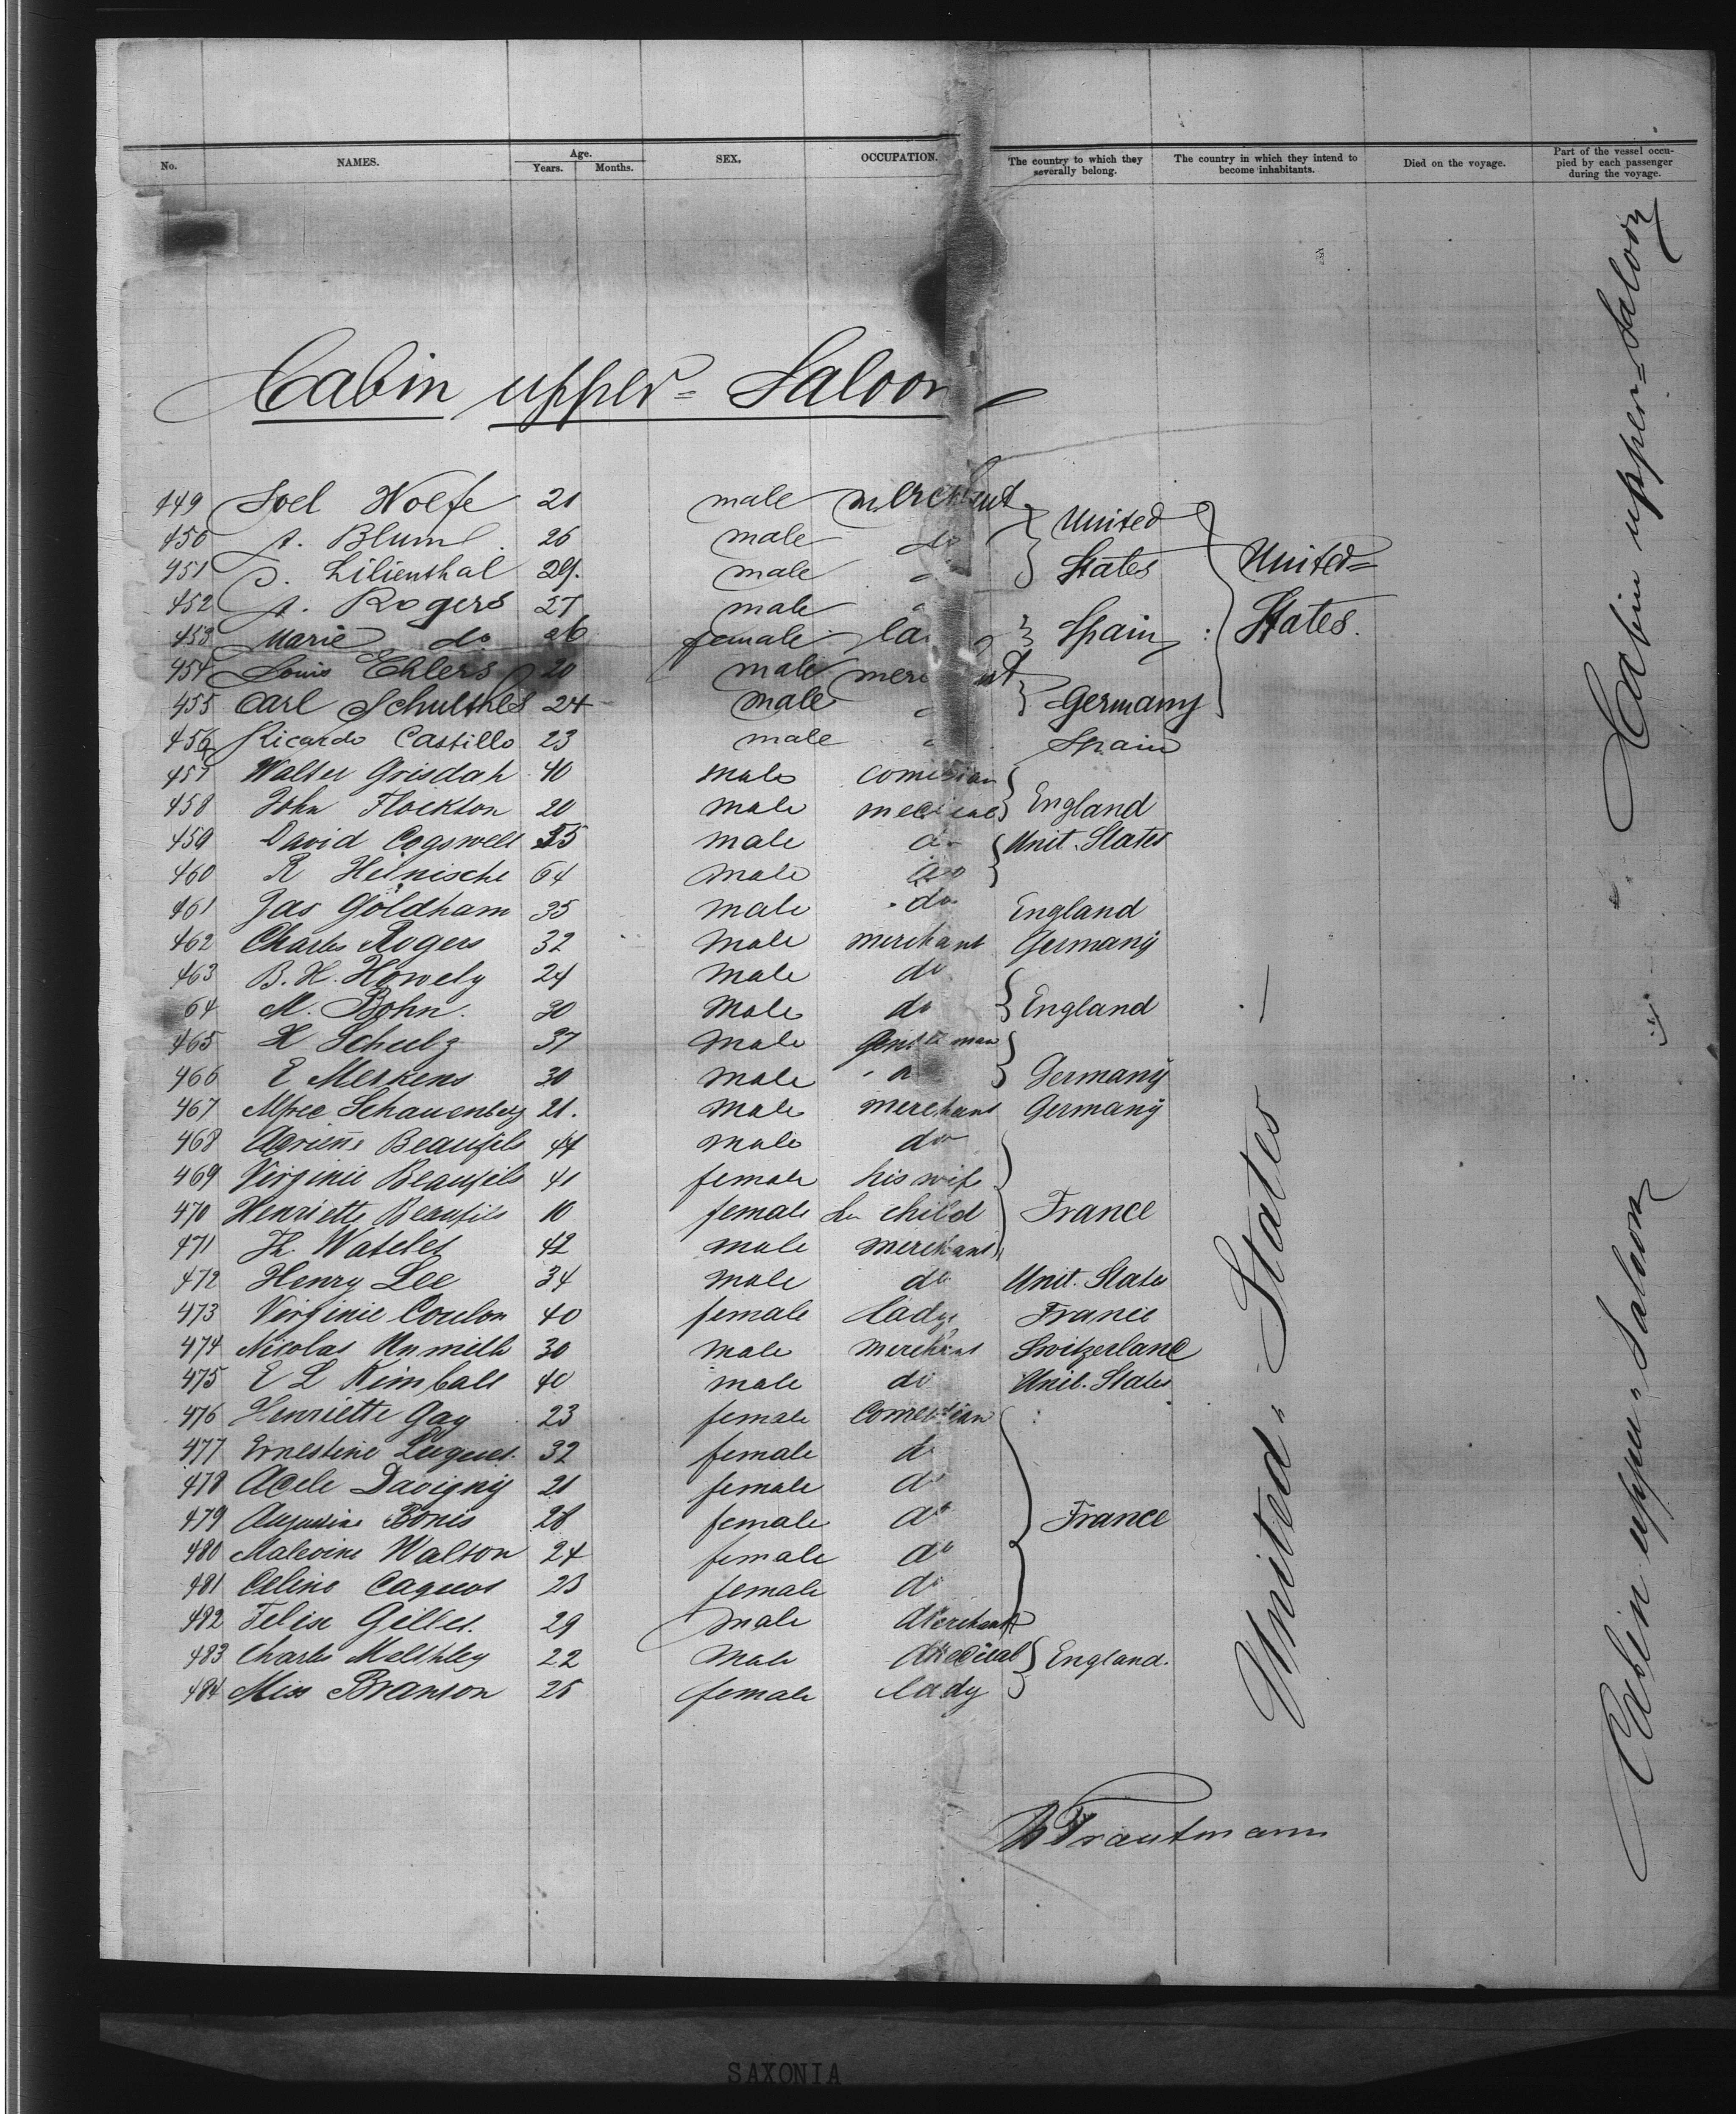 No. NAMES. Age. Years. Months. SEX. OCCUPATION. The country to which they severally belong. The country in which they intend to become inhabitants. Died on the voyage. Part of the vessel occupied by each passenger during the voyage.
Cabin upper= Saloon
449 Joel Wolfe 21 male merchant United
450 A. Blum 26 male do
451 Lilienthal 29. male States United=
452 A. Rogers 27 male States.
453 Marie do 26 female Spain
454 Louis Ehlers 20 male merchant
455 Carl Schulthes 24 male Germany
456 Ricardo Castillo 23 male Spain
457 Walter Grisdah 40 male comedian
458 John Flockton 20 male medical England
459 David Cogswell 55 male do Unit. States
460 R Heinische 64 male do
461 Jas Goldham 35 male do England
462 Charles Rogers 32 male merchant Germany
463 B. H. Howely 24 male do
64 M. Bohn. 30 male do England
465 H Schulz 37 male gentleman
466 E Merkens 30 male Germany
467 Schauenberg 21. male merchant Germany
468 Beaufils 44 male do
469 Virginie Beaufils 41 female his wife
470 Henriette Beaufils 10 female child France
471 Th. Watelet 42 male merchant
472 Henry Lee 34 male do Unit. States
473 Virginie Coulon 40 female lady France
474 Nicolas 30 male merchant Switzerland
475 E L Kimball 40 male do Unit. States
476 Henriette Gay 23 female comedian
477 Ernestine Luguet. 32 female do
478 Adele Davigny 21 female do
479 Augustine Bonis 28 female do France
480 Malvine Walton 24 female do
481 Celine 23 female do
482 Felix Gilles. 29 male Merchant
483 Charles Melthley 22 male Medical England.
484 Miss Branson 25 female lady
United States
Cabin upper=Saloon
Cabin upper Saloon
Trautmann
SAXONIA